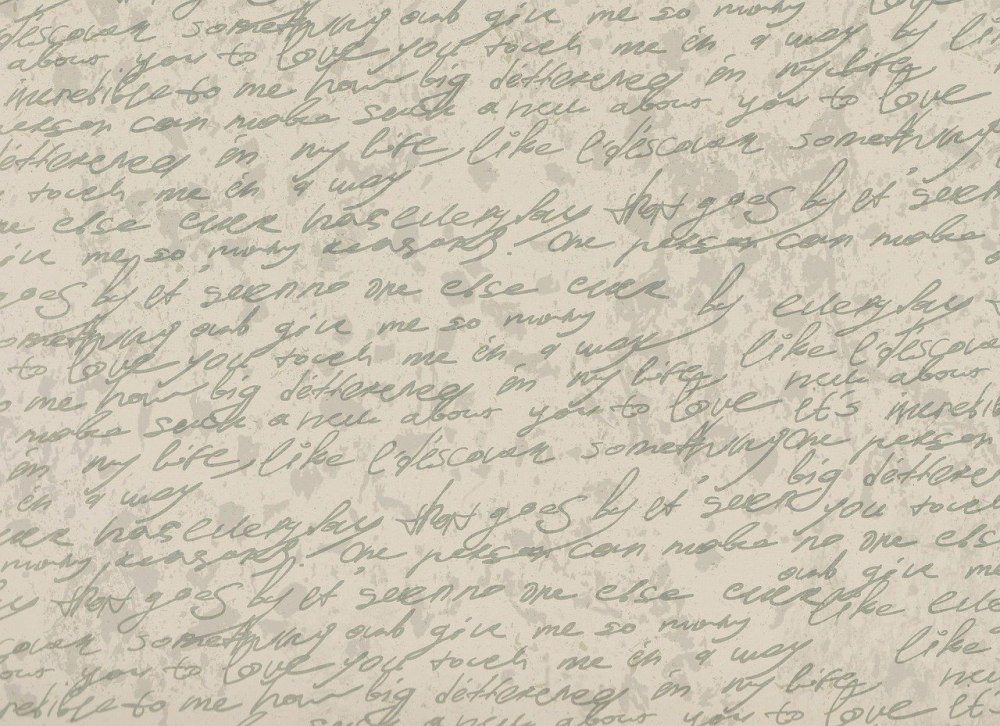 discover something and give me so many
about you to love you touch me in a way by
incredible to me how big difference in my life
person can make such a new about you to love
difference in my life, like I discover something
touch me in a way
one else ever has every day that goes by it seem
give me so many reasons. One person can make
goes by it seem no one else ever by every day
something and give me so many
to love you touch me in a way like I discover
to me how big difference in my life new about
make such a new about you to love it's
in my life, like I discover something One person
in a way big difference
ever has every day that goes by it seem you touch
many reasons. One person can make no one else
and give me
that goes by it seem no one else ever like
discover something and give me so many
about you to love you touch me in a way like
incredible to me how big difference in my life
such a new about you to love it's